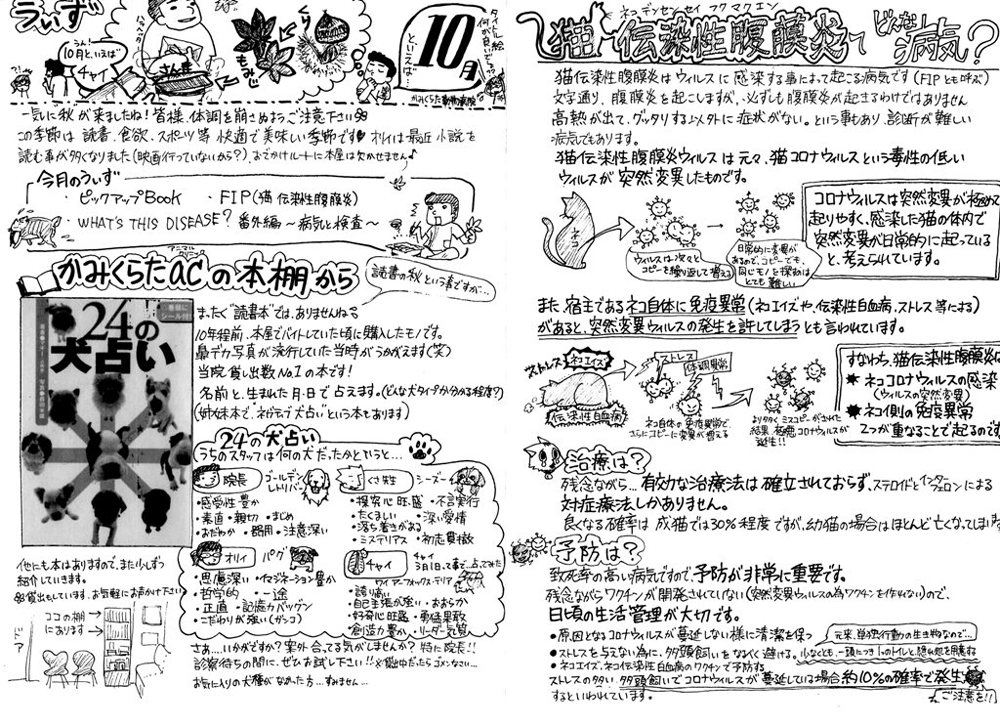 うぃず
うん!
10月と、いえば
チャイ
さんま
くり
もみじ
といえば…
10月
タイトル絵
何が良いだろう??
かみくらた動物病院
一気に秋が来ましたね！皆様、体調を崩さぬようご注意下さい
この季節は読書、食欲、スポーツ等 快適で美味しい季節です♥ オリィは最近 小説を
読む事が多くなりました(映画行っていないから?)。おでかけルートに本屋は欠かせません♪
今月のうぃず
・ピックアップBook ・FIP(猫伝染性腹膜炎)
・WHAT'S THIS DISEASE? 番外編 〜病気と検査〜
かみくらたacの本棚から
アニマル
読書の秋という事ですが…
24の
犬占い
まったく"読書本"では、ありませんね
10年程前、本屋でバイトしていた頃に購入したモノです。
鼻デカ写真が流行していた当時がうかがえます(笑)
当院貸し出数No.1の本です!
名前と、生まれた月・日で占えます。(どんな犬タイプか分かる程度?)
(姉妹本で、ネガティブ犬占いという本もあります)
24の犬占い
うちのスタッフは何の犬だったかというと…
院長
ゴールデン
レトリバー
・感受性豊か
・素直・親切・まじめ
・おだやか ・器用・注意深い
くさ先生
シーズー
・探究心旺盛 ・不言実行
・たくましい ・深い愛情
・落ち着きがある
・ミステリアス ・初志貫徹
オリィ
パグ
・思慮深い・イマジネーション豊か
・哲学的 ・一途
・正直 ・記憶力バツグン
・こだわりが強い(ガンコ)
チャイ
チャイ
3月1日って事で、占ってみた
ワイアーフォックス・テリア
・誇り高い
・自己主張が強い ・おおらか
・好奇心旺盛 ・勇猛果敢
・創造力豊か ・リーダー気質
さぁ….いかがですか？案外合ってる気がしませんか？特に院長!!
診察待ちの間に、ぜひお試し下さい!!※貸出中だったらゴメンなさい…
お気に入りの犬種がなかった方…すみません…
他にも本はありますので、また少しずつ
紹介していきます。
貸出もしています。お気軽にお声かけ下さい
ココの棚
にあります
ドア
ネコデンセンセイ フクマクエン
猫伝染性腹膜炎て どんな病気?
猫伝染性腹膜炎はウィルスに感染する事によって起こる病気です(FIPとも呼ぶ)
文字通り、腹膜炎を起こしますが、必ずしも腹膜炎が起きるわけではありません
高熱が出て、グッタリする以外に症状がない。という事もあり、診断が難しい
病気でもあります。
猫伝染性腹膜炎ウィルスは元々、猫コロナウィルスという毒性の低い
ウィルスが突然変異したものです。
ネコ
ウィルスは次々と
コピーを繰り返して増える
日常的に変異が
あるので、コピーでも、
同じモノを探すのは
とても難しい
コロナウィルスは突然変異が極めて
起りやすく、感染した猫の体内で
突然変異が日常的に起っている
と、考えられています。
また、宿主であるネコ自体に免疫異常(ネコエイズや、伝染性白血病、ストレス等による)
があると、突然変異ウィルスの発生を許してしまうとも言われています。
ストレス
ネコエイズ
伝染性白血病
ストレス
体調異常
ネコ自体の免疫異常で、
さらにコピーに変異が増える
よりタクサンミスコピーがされた
結果、極悪コロナウィルスが
誕生!!
すなわち、猫伝染性腹膜炎は
★ネココロナウィルスの感染
(ウィルスの突然変異)
★ネコ側の免疫異常
2つが重なることで起るのです
治療は?
残念ながら…有効な治療法は確立されておらず、ステロイドとインターフェロンによる
対症療法しかありません。
良くなる確率は成猫では30%程度ですが、幼猫の場合はほんど亡くなってしまいます
予防は?
致死率の高い病気ですので、予防が非常に重要です。
残念ながらワクチンが開発されていない(突然変異ウィルスの為ワクチンを作れない)ので、
日頃の生活管理が大切です。
●原因となるコロナウィルスが蔓延しない様に清潔を保つ
元来、単独行動の生き物なので…
●ストレスを与えない為に、多頭飼いをなるべく避ける。少なくとも、一頭につき1つのトイレと、隠れ家を用意する
●ネコエイズ、ネコ伝染性白血病のワクチンで予防する。
ストレスの多い、多頭飼いでコロナウィルスが蔓延している場合 約10%の確率で発生
するといわれています。
ご注意を!!